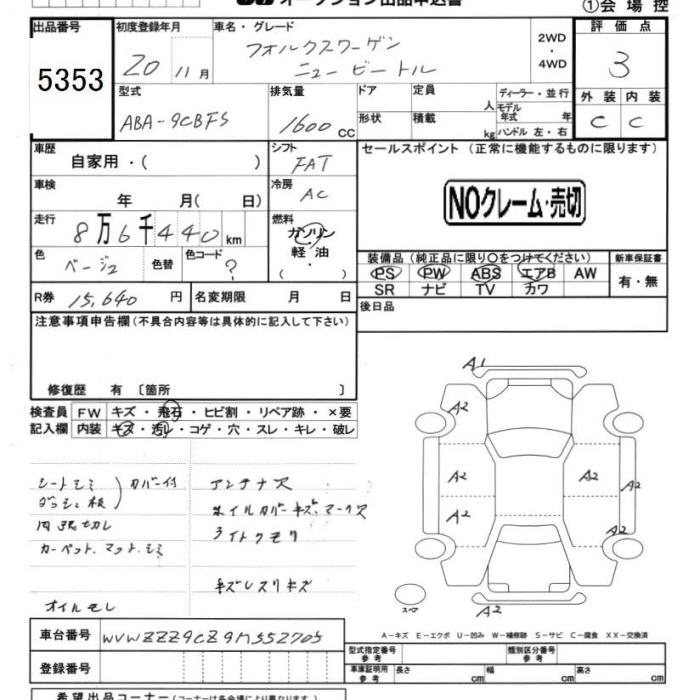 オークション出品申込書
①会場控
出品番号
5353
初度登録年月
20 11月
車名・グレード
フォルクスワーゲン
ニュービートル
2WD
・
4WD
評価点
3
型式
ABA-9CBFS
排気量
1600 cc
ドア
定員
人
形状
積載
kg
ディーラー・並行
モデル年式 年
ハンドル 左・右
外装 内装
C C
車歴
自家用・( )
シフト
FAT
セールスポイント (正常に機能するものに限ります)
NOクレーム・売切
車検
年 月( 日)
冷房
AC
走行
8万6千440km
燃料
ガソリン
軽油
(・)
色
ベージュ
色替
色コード
?
装備品 (純正品に限り〇をつけてください)
PS PW ABS エアB AW
SR ナビ TV カワ
新車保証書
有・無
R券 15,640 円
名変期限 月 日
後日品
注意事項申告欄 (不具合内容等は具体的に記入して下さい)
修復歴 有 〔箇所 〕
検査員
記入欄
FW キズ・飛石・ヒビ割・リペア跡・×要
内装 キズ・汚レ・コゲ・穴・スレ・キレ・破レ
シートシミ
ダッシュ板
カバー付
内張切レ
カーペット、マット、シミ
オイルモレ
アンテナ欠
ホイルカバーキズ、マーク欠
ライトクモリ
キズレスリキズ
A1
A2
A2
A2
A2
A2
A2
A2
A2
スペア
A-キズ E-エクボ U-凹み W-補修跡 S-サビ C-腐食 XX-交換済
車台番号 WVWZZZ9CZ9M552705
登録番号
型式指定番号
参考
類別区分番号
参考
車庫証明用
参考
長さ cm
幅 cm
高さ cm
希望出品コーナー (コーナーは各会場により異なります)